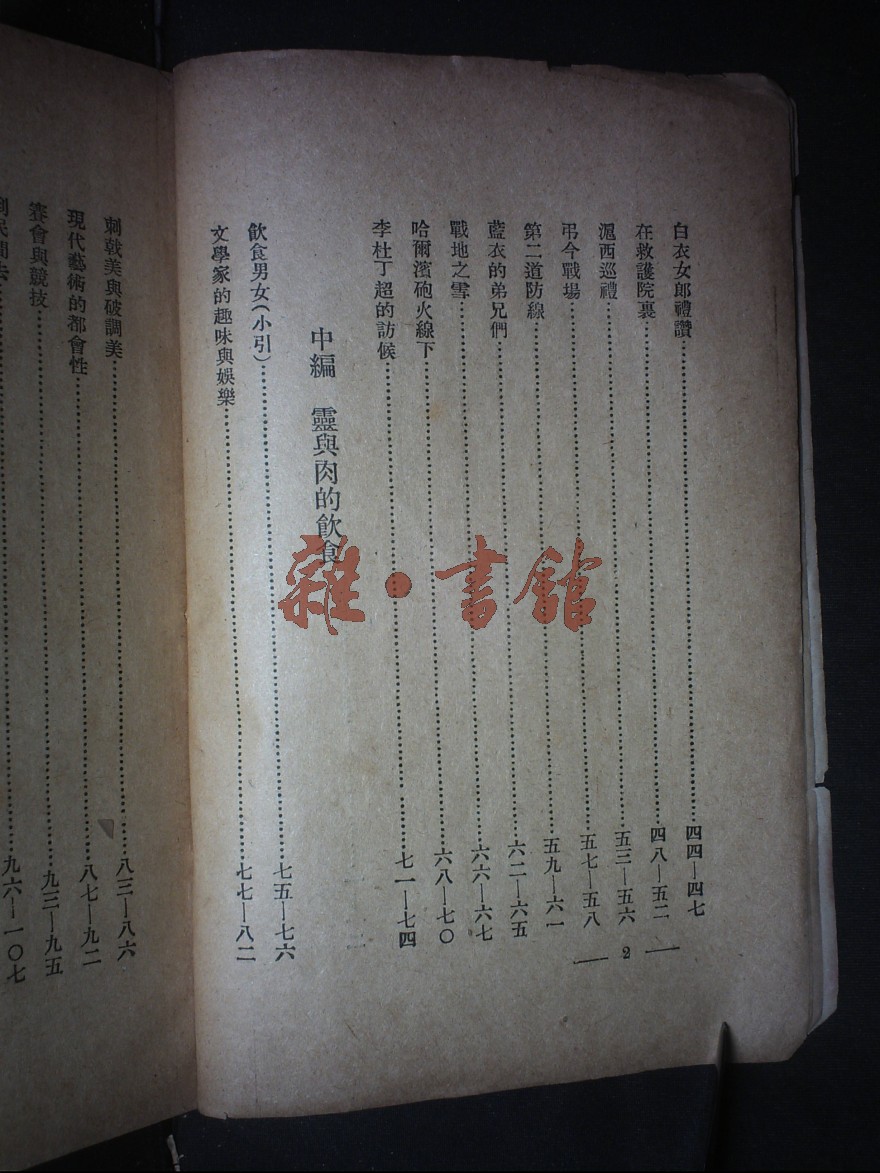 白衣女郎禮讚……四四—四七
在救護院裏……四八—五二
滬西巡禮……五三—五六
弔今戰場……五七—五八
第二道防線……五九—六一
藍衣的弟兄們……六二—六五
戰地之雪……六六—六七
哈爾濱砲火線下……六八—七〇
李杜丁超的訪候……七一—七四
中編 靈與肉的飲食
飲食男女(小引)……七五—七六
文學家的趣味與娛樂……七七—八二
2
刺戟美與破調美……八三—八六
現代藝術的都會性……八七—九二
賽會與競技……九三—九五
到民間去……九六—一〇七
雜·書館